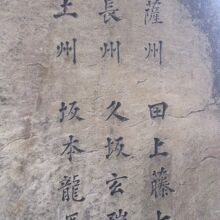 薩州 田上藤
長州 久坂玄瑞
土州 坂本龍馬